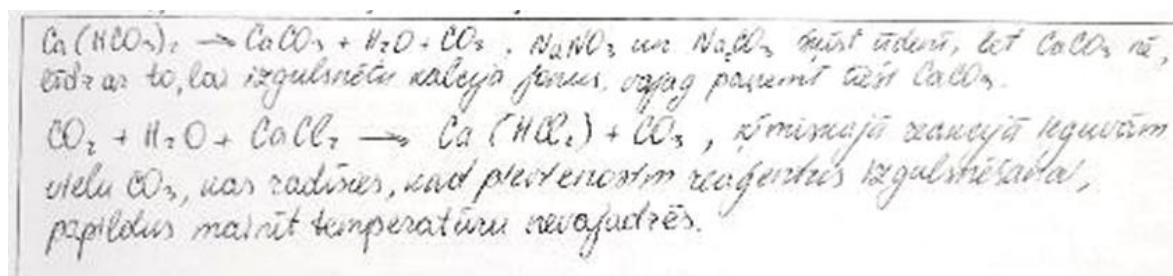 Ca(HCO₃)₂ → CaCO₃ + H₂O + CO₂, NaNO₃ un Na₂CO₃ šķīst ūdenī, bet CaCO₃ nē,
līdz ar to, lai izgulsnētu kalcija jonus, vajag paņemt tieši CaCO₃.
CO₂ + H₂O + CaCl₂ → Ca(HCl₂) + CO₃, ķīmiskajā reakcijā ieguvām
vielu CO₃, kas radīsies, kad pievienosim reaģentus izgulsnēšanai,
papildus mainīt temperatūru nevajadzēs.